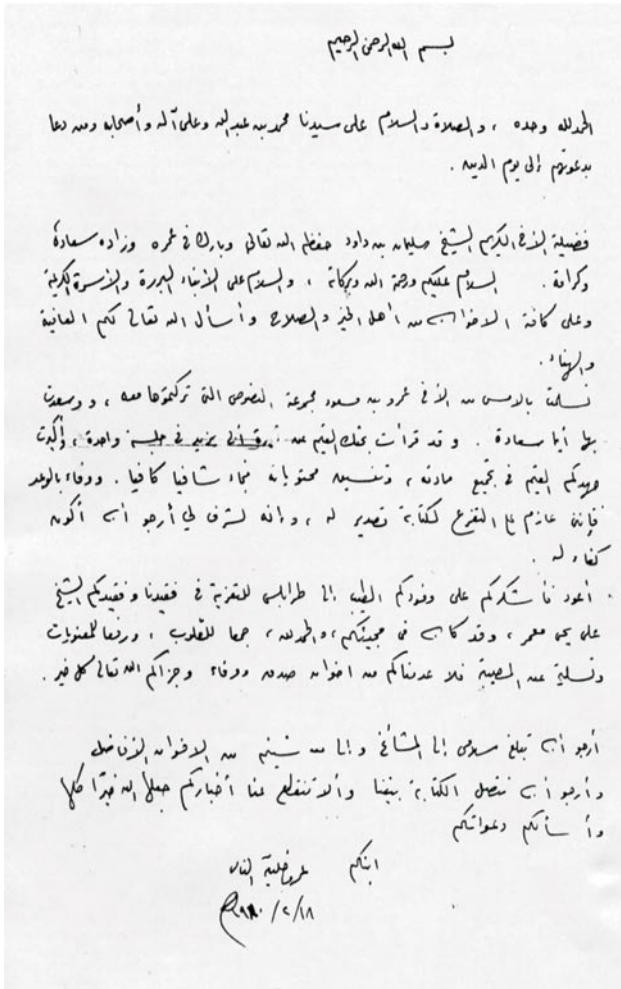 بسم الله الرحمن الرحيم
الحمد لله وحده ، والصلاة والسلام على سيدنا محمد بن عبد الله وعلى آله وأصحابه ومن دعا
بدعوتهم إلى يوم الدين .
فضيلة الأخ الكريم الشيخ سليمان بن داود حفظه الله تعالى وبارك في عمره وزاده سعادة
وكرامة . السلام عليكم ورحمة الله وبركاته ، والسلام على الأبناء البررة والأسرة الكريمة
وعلى كافة الاخوان من أهل الخير والصلاح وأسأل الله تعالى لكم العافية
والهناء .
تسلمت بالامس من الأخ عمرو بن مسعود مجموعة النصوص التي تركتموها معه ، وسعدت
بها أيما سعادة . وقد قرأت بحثكم القيم عن ثورة أبي يزيد في جلسة واحدة ، وأكبرت
جهدكم القيم في تجميع مادته ، وتنسيق محتوياته فجاء شافيا كافيا . ووفاء بالوعد
فإنني عازم على التفرغ لكتابة تصدير له ، وإنه لشرف لي أرجو أن أكون
كفاء له .
أعود فأشكركم على وفودكم الطيب إلى طرابلس للتعزية في فقيدنا وفقيدكم الشيخ
علي يحيى معمر ، وقد كان في مجيئكم ، والحمد لله ، جمعا للقلوب ، ورفعا للمعنويات
وتسلية عن المصيبة فلا عدمناكم من اخوان صدق ووفاء وجزاكم الله تعالى كل خير .
أرجو أن تبلغ سلامي إلى المشائخ وإلى من شئتم من الاخوان الأفاضل
وأرجو أن تتصل الكتابة بيننا وألا تنقطع عنا أخباركم جعلها الله خيرا كلها
وأسألكم دعواتكم
ابنكم عمرو خليفة النامي
١٩٨٠/٢/١٨م